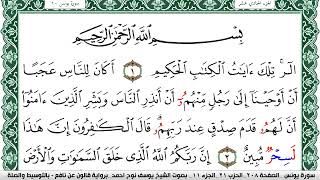 الجزء الحادي عشر
سورة يونس ١٠
بِسْمِ اللَّهِ الرَّحْمَٰنِ الرَّحِيمِ
الٓر۪ تِلْكَ ءَايَٰتُ الْكِتَٰبِ الْحَكِيمِ ١ أَكَانَ لِلنَّاسِ عَجَبًا
أَنْ أَوْحَيْنَا إِلَىٰ رَجُلٍ مِّنْهُمُۥ أَنْ أَنذِرِ النَّاسَ وَبَشِّرِ الَّذِينَ ءَامَنُوا
أَنَّ لَهُمُۥ قَدَمَ صِدْقٍ عِندَ رَبِّهِمُۥ قَالَ الْكَٰفِرُونَ إِنَّ هَٰذَا
لَسِحْرٌ مُّبِينٌ ٢ إِنَّ رَبَّكُمُ اللَّهُ الَّذِي خَلَقَ السَّمَٰوَٰتِ وَالْأَرْضَ
سورة يونس . الصفحة ٢٠٨ . الحزب ٢١ . الجزء ١١ . بصوت الشيخ يوسف نوح احمد . برواية قالون عن نافع - بالتوسيط والصلة